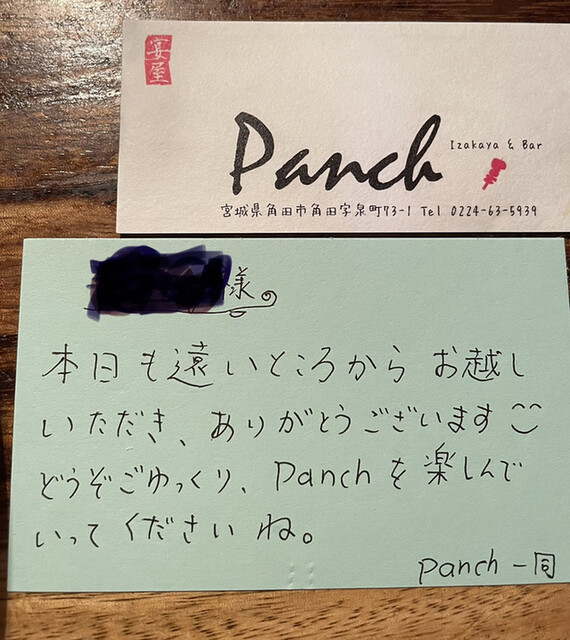 宴屋
Panch
Izakaya & Bar
宮城県角田市角田字泉町73-1 Tel 0224-63-5939
様
本日も遠いところから お越し
いただき、ありがとうございます
どうぞごゆっくり、Panchを楽しんで
いってくださいね。
Panch一同